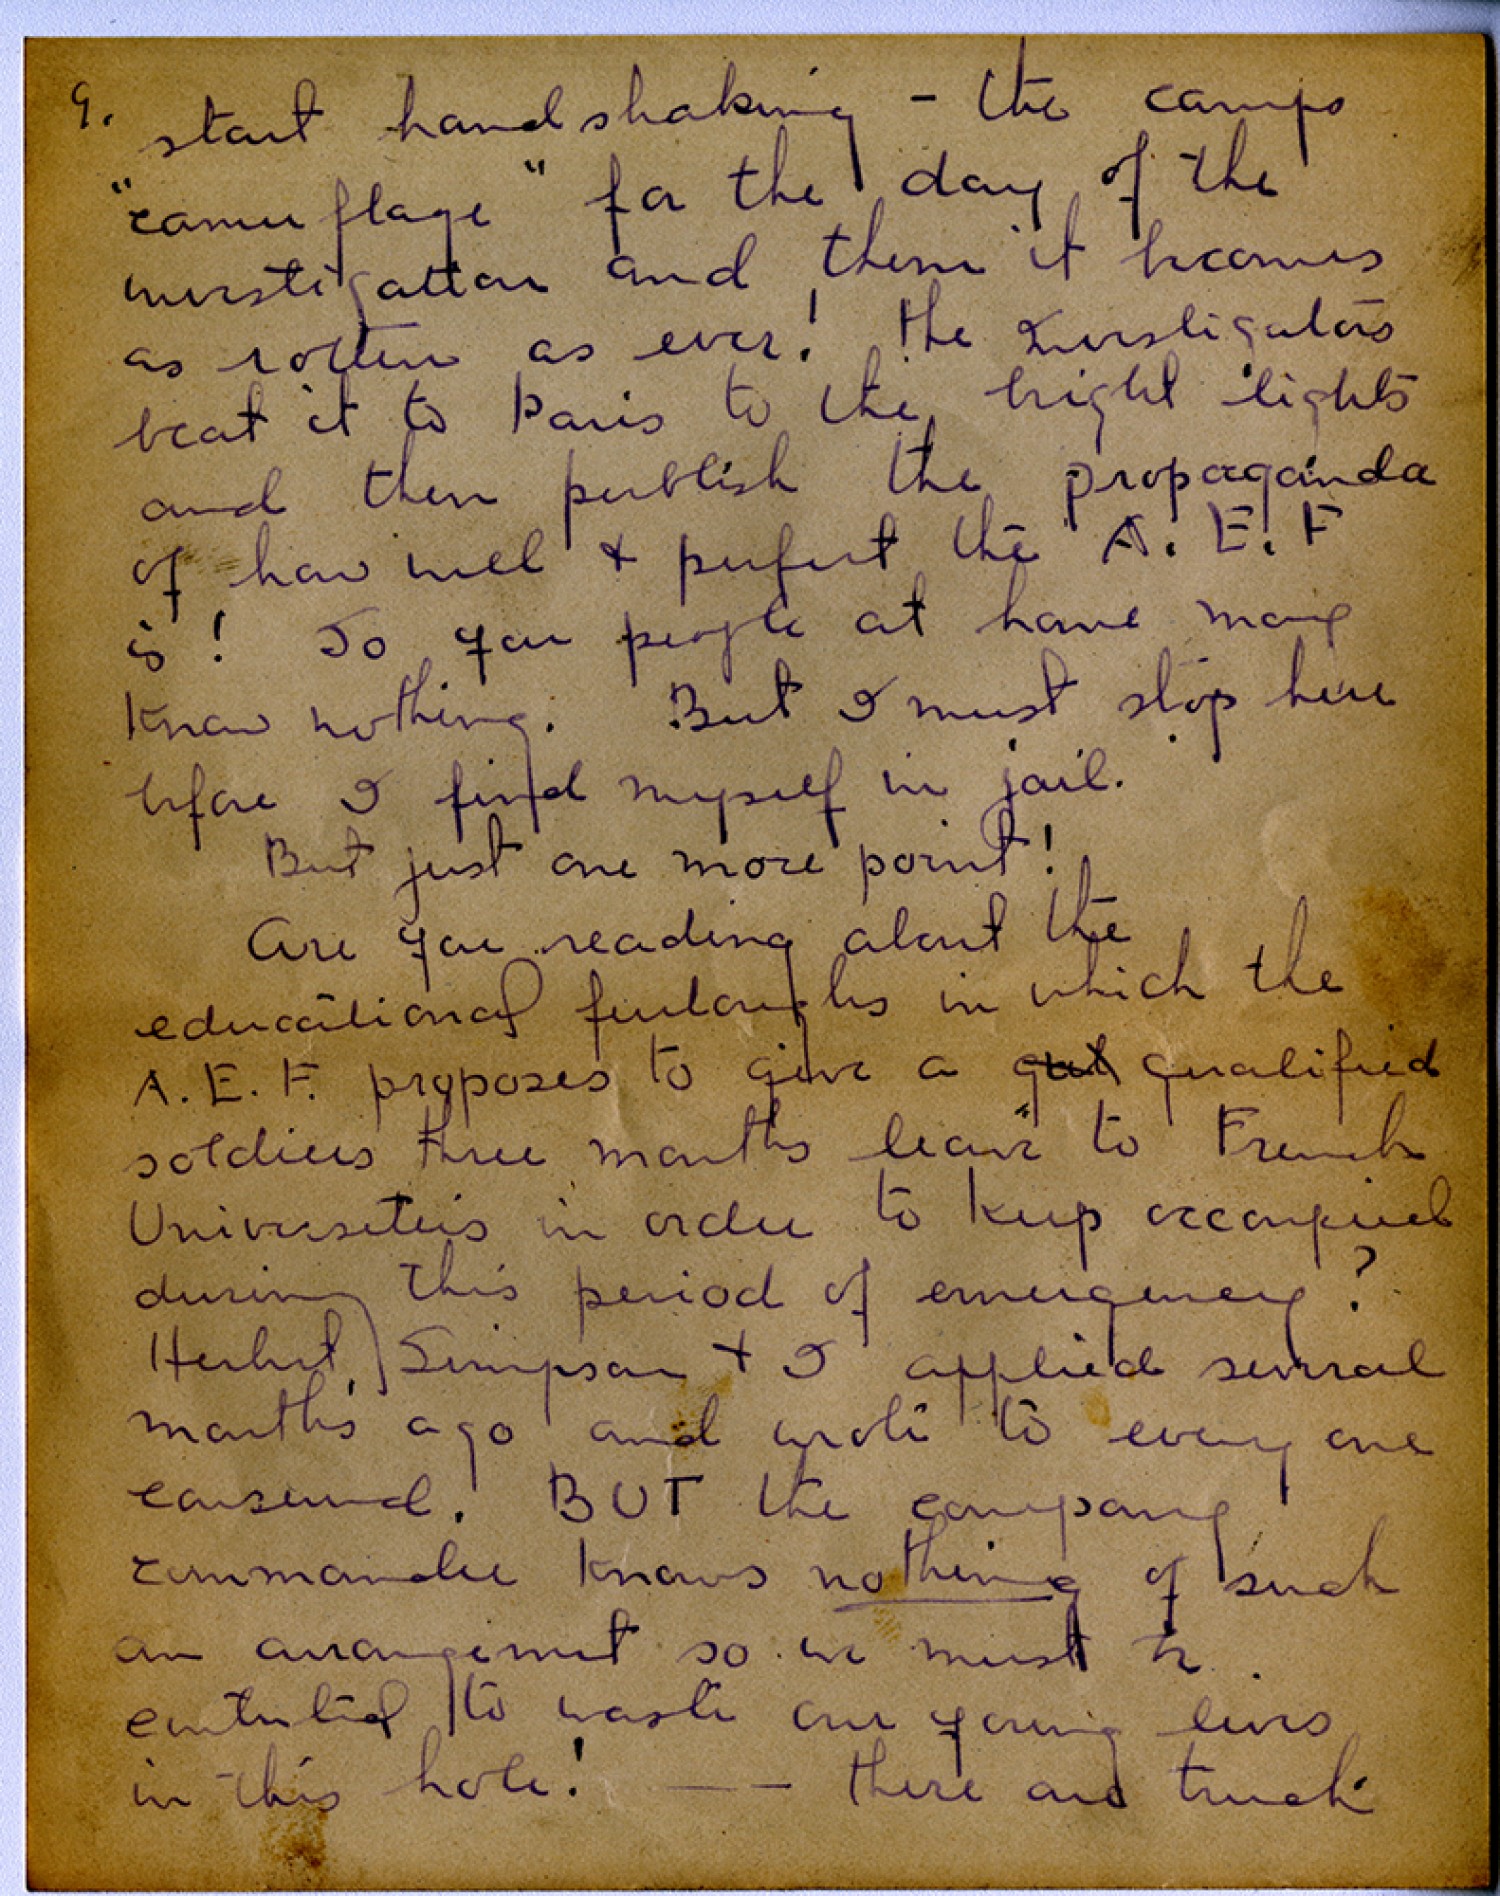 9. start handshaking - the camps
"camuflage" for the day of the
investigation and then it becomes
as rotten as ever! The Investigators
beat it to Paris to the bright lights
and then publish the propaganda
of how well & perfect the A. E. F
is! So you people at home may
know nothing. But I must stop here
before I find myself in jail.
But just one more point!
Are you reading about the
educational furloughs in which the
A. E. F. proposes to give a qual qualified
soldiers three months leave to French
Universeties in order to keep occoupied
during this period of emergency?
Herbert Simpson + I applied several
months ago and wrote to every one
conserned. BUT the company
commander knows nothing of such
an arrangement so we must be
contented to waste our young lives
in this hole! — — there are truck